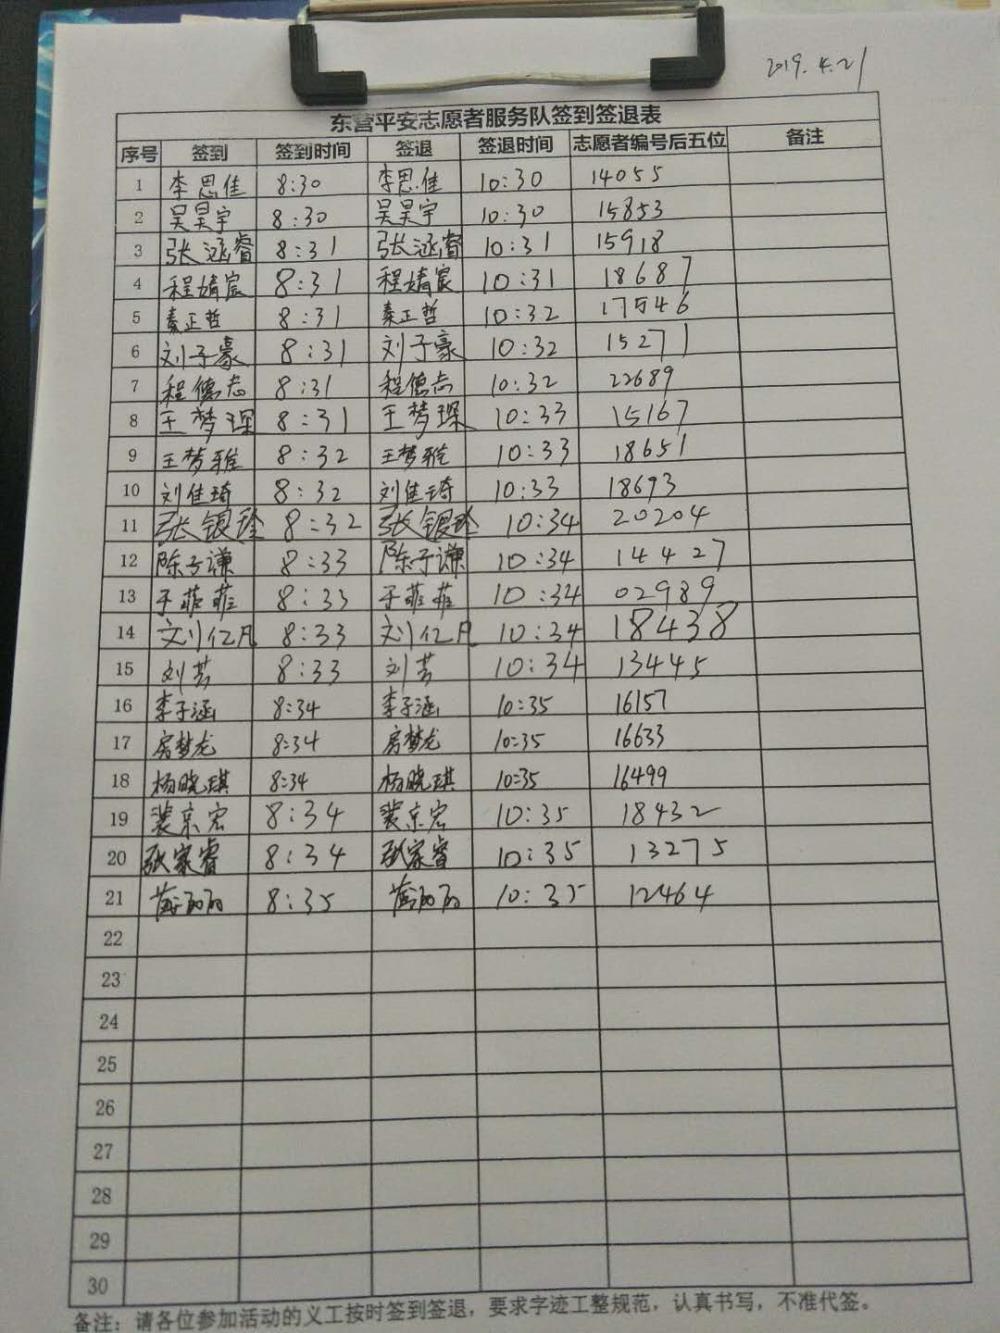 2019.4.21
东营平安志愿者服务队签到签退表
序号 签到 签到时间 签退 签退时间 志愿者编号后五位 备注
1 李思佳 8:30 李思佳 10:30 14055
2 吴昊宇 8:30 吴昊宇 10:30 15853
3 张涵睿 8:31 张涵睿 10:31 15918
4 程婧宸 8:31 程婧宸 10:31 18687
5 秦正哲 8:31 秦正哲 10:32 17546
6 刘子豪 8:31 刘子豪 10:32 15271
7 程德志 8:31 程德志 10:32 22689
8 王梦琛 8:31 王梦琛 10:33 15167
9 王梦雅 8:32 王梦雅 10:33 18651
10 刘佳琦 8:32 刘佳琦 10:33 18693
11 张银玲 8:32 张银玲 10:34 20204
12 陈子谦 8:33 陈子谦 10:34 14427
13 于菲菲 8:33 于菲菲 10:34 02989
14 刘亿凡 8:33 刘亿凡 10:34 18438
15 刘芳 8:33 刘芳 10:34 13445
16 李子涵 8:34 李子涵 10:35 16157
17 房梦龙 8:34 房梦龙 10:35 16633
18 杨晓琪 8:34 杨晓琪 10:35 16499
19 裴京宏 8:34 裴京宏 10:35 18432
20 张家睿 8:34 张家睿 10:35 13275
21 8:35 10:35 12464
22
23
24
25
26
27
28
29
30
备注：请各位参加活动的义工按时签到签退，要求字迹工整规范，认真书写，不准代签。